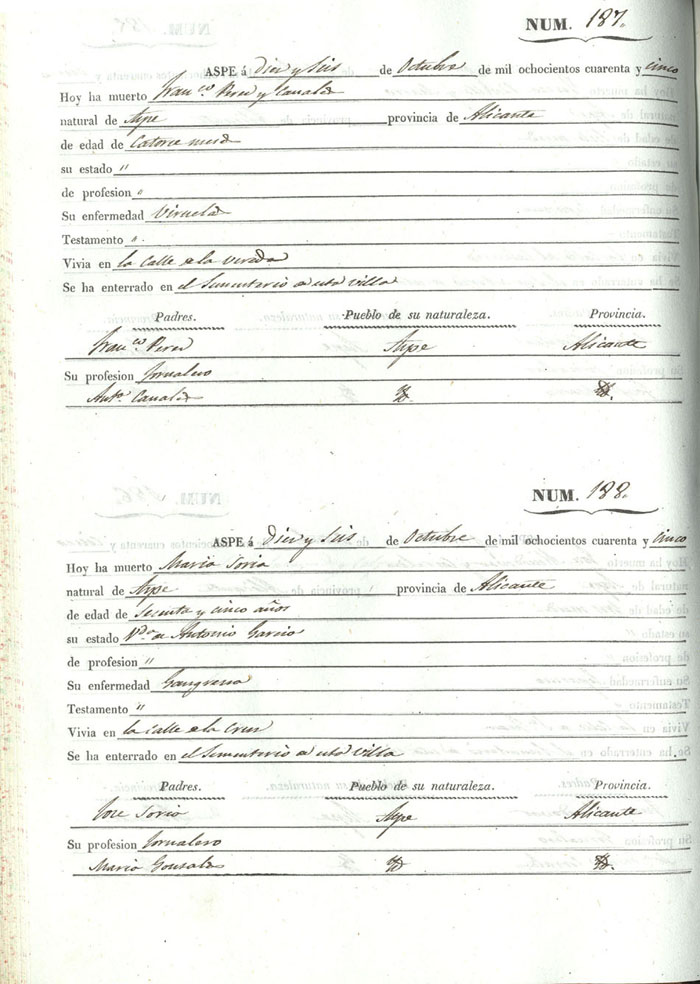 NUM. 187.
ASPE á Diez y Seis de Octubre de mil ochocientos cuarenta y cinco
Hoy ha muerto Franco Perez y Canals
natural de Aspe provincia de Alicante
de edad de Catorce meses
su estado "
de profesion "
Su enfermedad Viruelas
Testamento ".
Vivia en la Calle de la Vereda
Se ha enterrado en el Sementerio de esta Villa
Padres. Pueblo de su naturaleza. Provincia.
Franco Perez Aspe Alicante
Su profesion Jornalero
Anta Canals Yd. Yd.
NUM. 188.
ASPE á Diez y Seis de Octubre de mil ochocientos cuarenta y cinco
Hoy ha muerto Maria Soria
natural de Aspe provincia de Alicante
de edad de Sesenta y cinco años
su estado Vda de Antonio Garcia
de profesion "
Su enfermedad Gangrena
Testamento "
Vivia en la Calle de la Cruz
Se ha enterrado en el Sementerio de esta Villa
Padres. Pueblo de su naturaleza. Provincia.
Jose Soria Aspe Alicante
Su profesion Jornalero
Maria Gonzalez Yd. Yd.